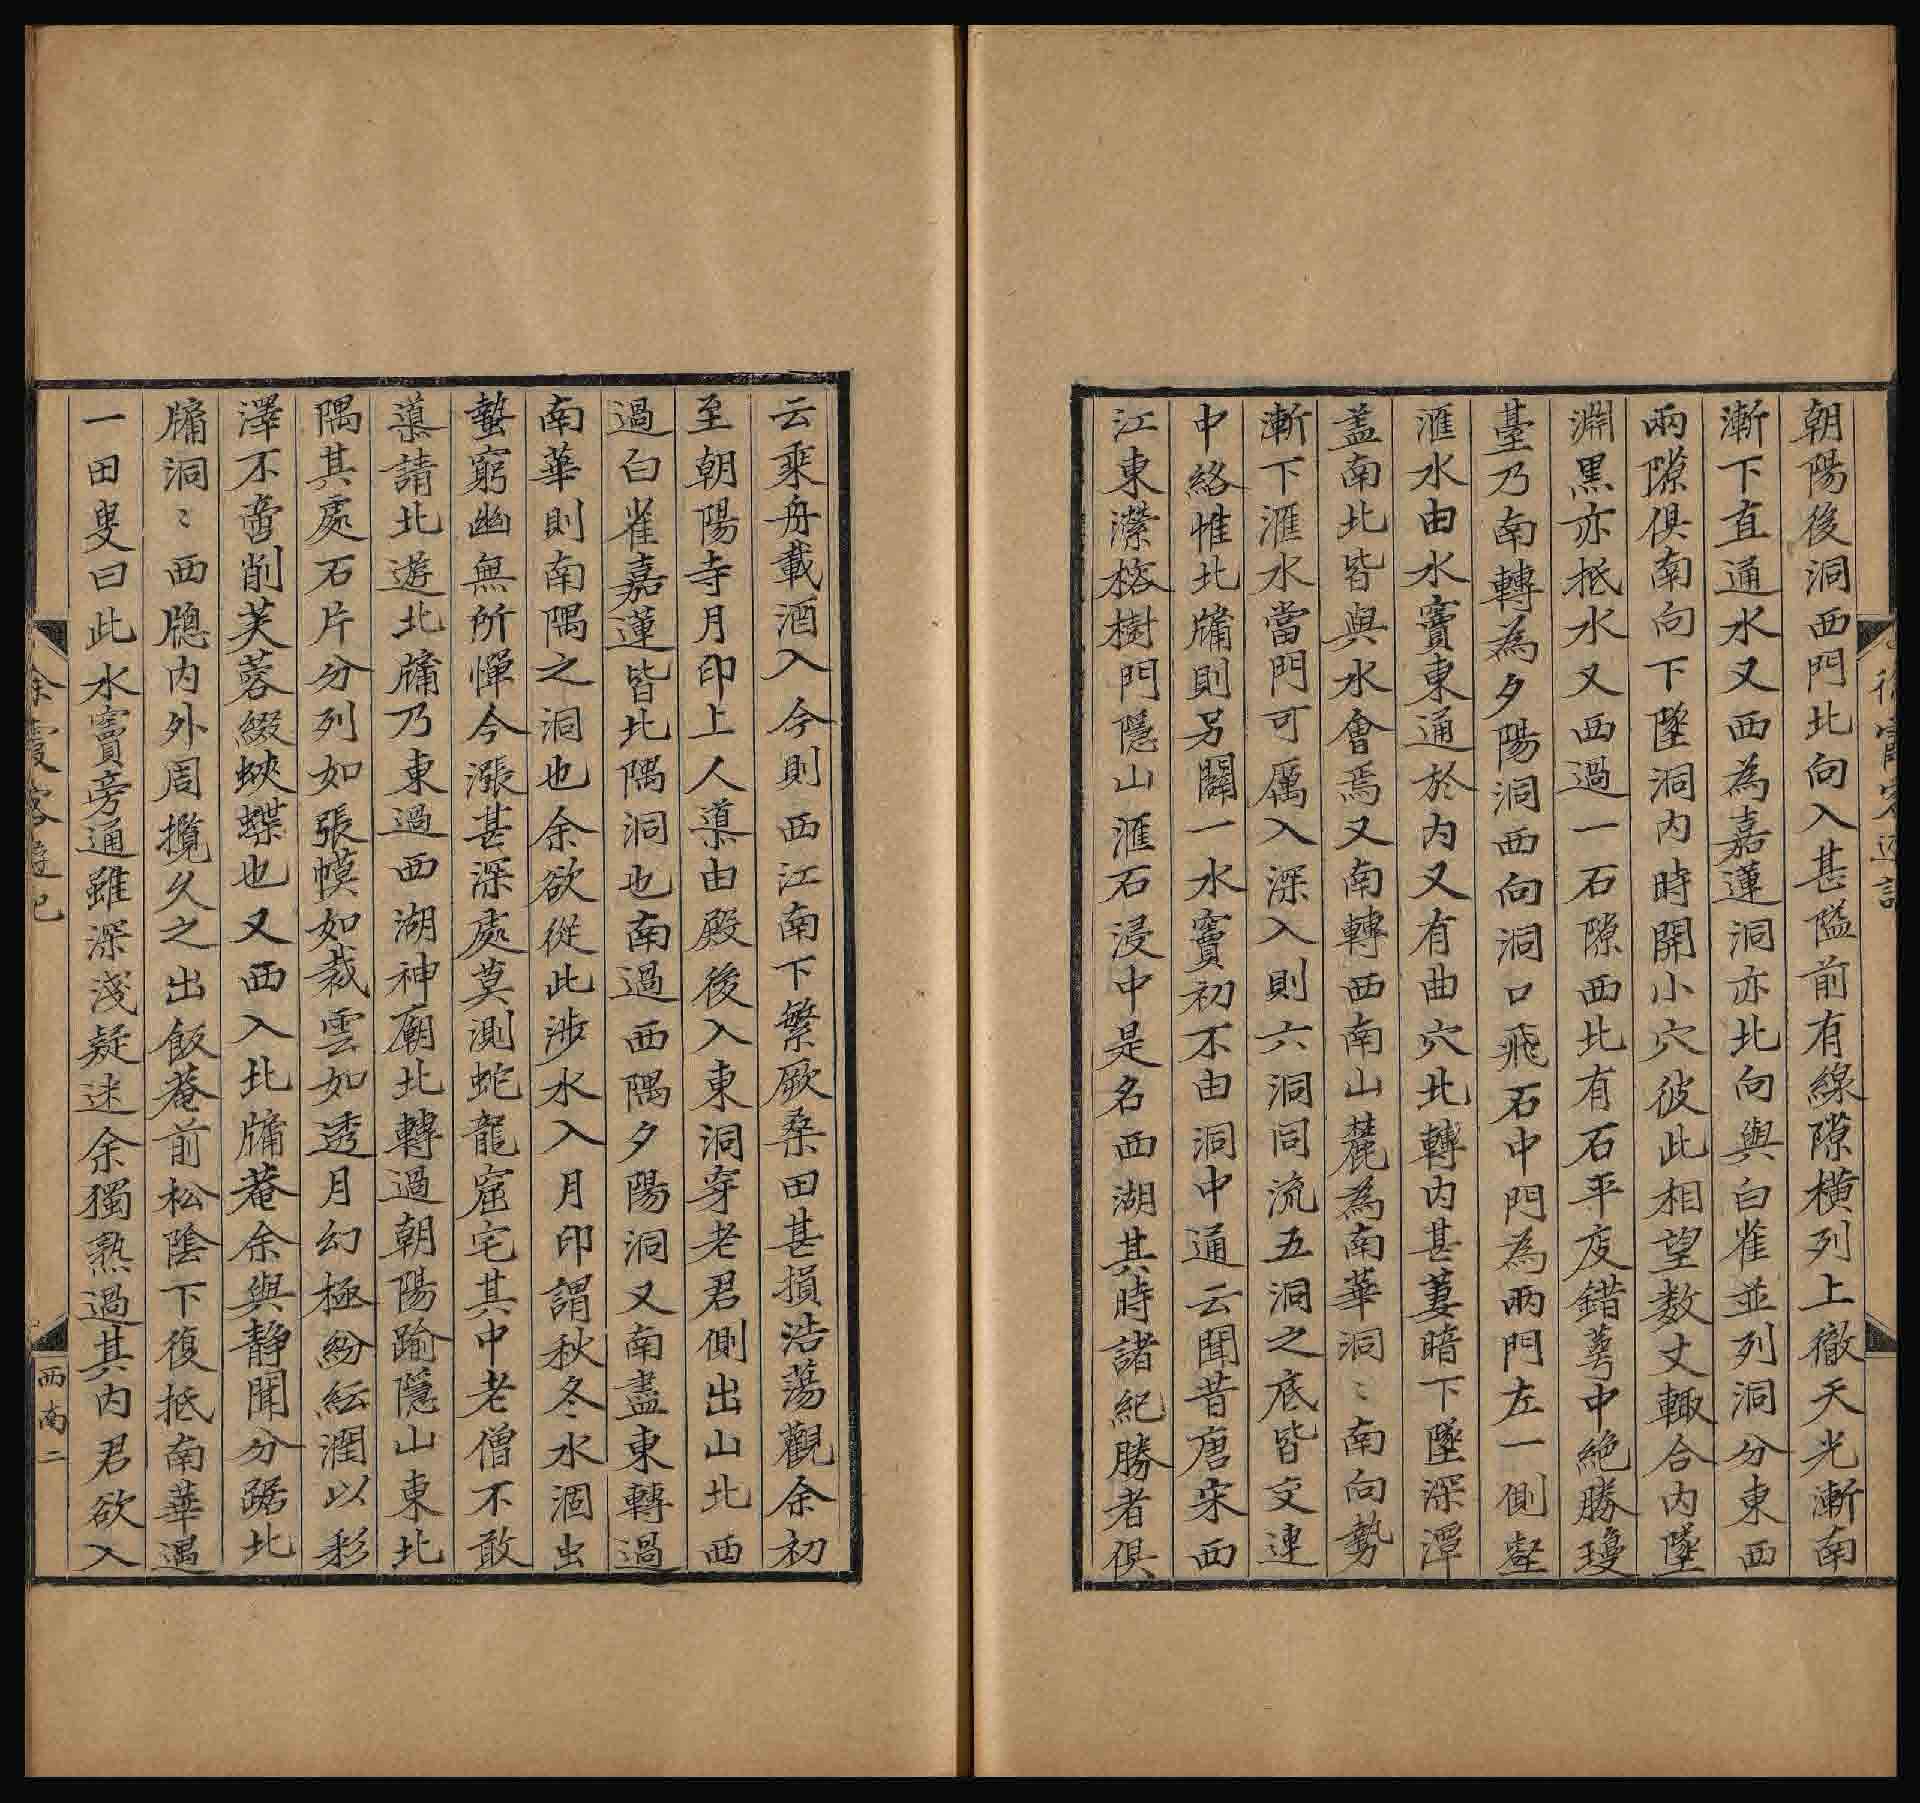 朝陽後洞西門北向入甚隘前有線隙橫列上徹天光漸南
漸下直通水又西為嘉蓮洞亦北向與白雀並列洞分東西
兩隙俱南向下墜洞内時開小穴彼此相望数丈輙合内墜
淵黑亦抵水又西過一石隙西北有石平庋錯蕚中絶勝瓊
臺乃南轉為夕陽洞西向洞口飛石中門為兩門左一側壑
滙水由水竇東通於内又有曲穴北轉内甚蔓暗下墜深潭
盖南北皆與水會焉又南轉西南山麓為南華洞〻南向勢
漸下滙水當門可厲入深入則六洞同流五洞之底皆交連
中絡惟北牖則另闢一水竇初不由洞中通云聞昔唐宋西
江東瀠榕樹門隱山滙石浸中是名西湖其時諸紀勝者俱
徐霞客遊記
云乘舟載酒入今則西江南下繁厥桑田甚損浩蕩觀余初
至朝陽寺月印上人導由殿後入東洞穿老君側出山北西
過白雀嘉蓮皆北隅洞也南過西隅夕陽洞又南盡東轉過
南華則南隅之洞也余欲從此涉水入月印謂秋冬水涸虫
蟄窮幽無所憚今漲甚深處莫測蛇龍窟宅其中老僧不敢
導請北遊北牖乃東過西湖神廟北轉過朝陽踰隱山東北
隅其處石片分列如張幙如裁雲如透月幻極紛紜潤以彩
澤不啻削芙蓉綴蛺蝶也又西入北牖菴余與静聞分踞北
牖洞〻西牕内外周攬久之出飯菴前松陰下復抵南華遇
一田叟曰此水竇旁通雖深淺疑迷余獨熟過其内君欲入
徐霞客遊記
西南二